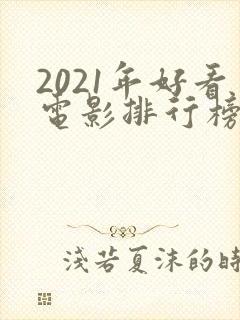 2021年好看
电影排行榜
浅若夏沫的時